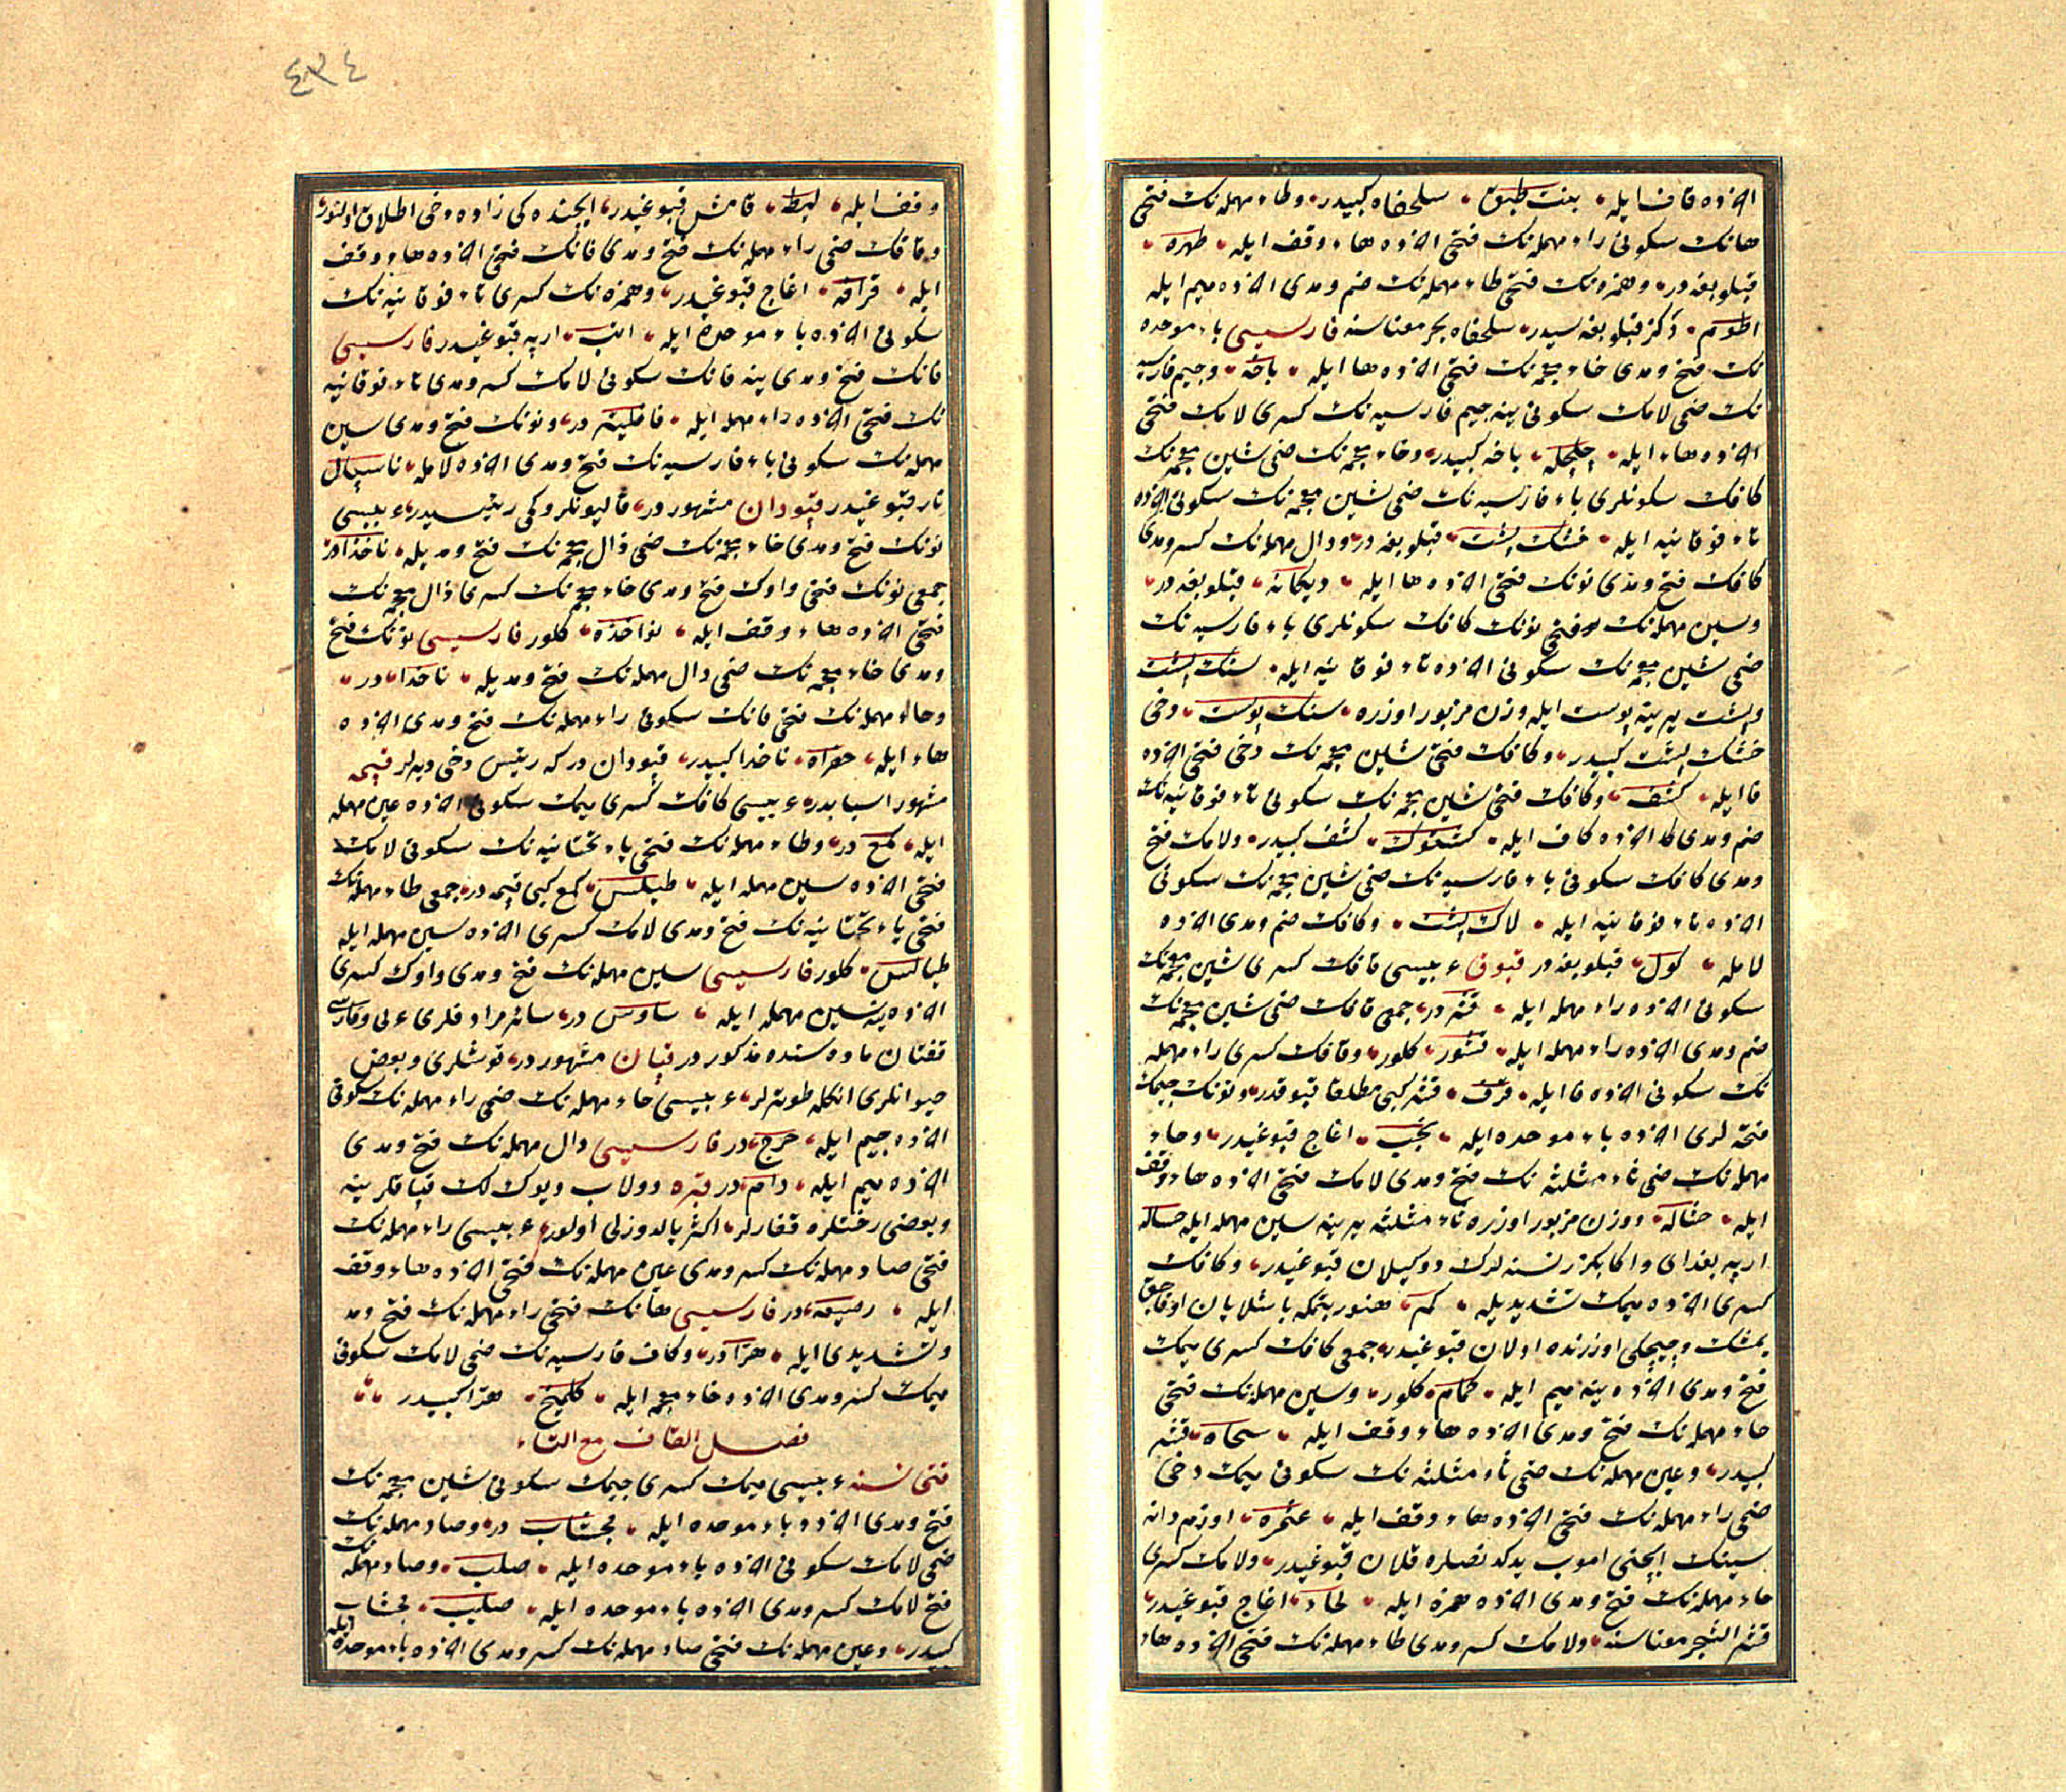 الآخرده قاف ایله بنت طبق سلحفاه کبیدر وطاء مهمله نك فتحی
هانك سکونی راء مهمله نك فتحی آخرده هاء وقف ایله طهره
قپلو بغه در وهمزه نك فتحی طاء مهمله نك ضم ومدی آخرده میم ایله
اطوم دکز قپلو بغه سیدر سلحفاه بحر معناسنه فارسیسی باء موحده
نك فتح ومدی خاء معجمه نك فتحی آخرده ها ایله باخه وجیم فارسیه
نك ضمی لامك سکونی ینه جیم فارسیه نك کسری لامك فتحی
آخرده هاء ایله چلچله باخه کبیدر وخاء معجمه نك ضمی شین معجمه نك
کافك سکونلری باء فارسیه نك ضمی شین معجمه نك سکونی آخرده
تاء فوقانیه ایله خشك پشت قپلو بغه در ودال مهمله نك کسر ومدی
کافك فتح ومدی نونك فتحی آخرده ها ایله دیکانه قپلو بغه در
وسین مهمله نك فتحی نونك کافك سکونلری باء فارسیه نك
ضمی شین معجمه نك سکونی آخرده تاء فوقانیه ایله سنك پشت
وپشت یرینه پوست ایله وزن مزبور اوزره سنك پوست دخی
خشك پشت کبیدر وکافك فتحی شین معجمه نك دخی فتحی آخرده
فا ایله کشف وکافك فتحی شین معجمه نك سکونی تاء فوقانیه نك
ضم ومدی کا آخرده کاف ایله کشتوك کشف کبیدر ولامك فتح
ومدی کافك سکونی باء فارسیه نك ضمی شین معجمه نك سکونی
آخرده تاء فوقانیه ایله لاك پشت وکافك ضم ومدی آخرده
لامله کول قپلو بغه در قبوق عربیسی قافك کسری شین معجمه نك
سکونی آخرده راء مهمله ایله قشر در جمعی قافك ضمی شین معجمه نك
ضم ومدی آخرده راء مهمله ایله قشور کلور وقافك کسری راء مهمله
نك سکونی آخرده فا ایله قرف قشر کبی مطلقا قبوقدر ونونك جیمك
فتحه لری آخرده باء موحده ایله نجب اغاج قبوغیدر وحاء
مهمله نك ضمی ثاء مثلثه نك فتح ومدی لامك فتحی آخرده هاء وقف
ایله حثاله ووزن مزبور اوزره ثاء مثلثه یرینه سین مهمله ایله حساله
ارپه بغدای واکا بکزر نسنه لرك دوکیلان قبوغیدر وکافك
کسری آخرده میمك تشدیدیله کم هنوز بتمکه باشلایان اوفاجق
یمشك وچیچکی اوزرنده اولان قبوغیدر جمعی کافك کسری میمك
فتح ومدی آخرده ینه میم ایله کمام کلور وسین مهمله نك فتحی
حاء مهمله نك فتح ومدی آخرده هاء وقف ایله سحاه قشر
کبیدر وعین مهمله نك ضمی ثاء مثلثه نك سکونی میمك دخی
ضمی راء مهمله نك فتحی آخرده هاء وقف ایله عثمره اوزم دانه
سینك ایچنی اموب یدکدنصکره قلان قبوغیدر ولامك کسری
حاء مهمله نك فتح ومدی آخرده همزه ایله لحاء اغاج قبوغیدر
قشر الشجر معناسنه ولامك کسر ومدی طاء مهمله نك فتحی آخرده هاء
٤٣٤
وقف ایله لیطه قامش قبوغیدر ایچنده کی زاده دخی اطلاق اولنور
وقافك ضمی راء مهمله نك فتح ومدی فانك فتحی آخرده هاء وقف
ایله قرافه اغاج قبوغیدر وهمزه نك کسری تاء فوقانیه نك
سکونی آخرده باء موحده ایله اتب ارپه قبوغیدر فارسیسی
فانك فتح ومدی ینه فانك سکونی لامك کسر ومدی تاء فوقانیه
نك فتحی آخرده راء مهمله ایله فافلیتر در ونونك فتح ومدی سین
مهمله نك سکونی باء فارسیه نك فتح ومدی آخرده لامله ناسپال
نار قبوغیدر قپودان مشهور در قالیونلر وکمی رئیسیدر عربیسی
نونك فتح ومدی خاء معجمه نك ضمی ذال معجمه نك فتح ومدیله ناخذا در
جمعی نونك فتحی واوك فتح ومدی خاء معجمه نك کسری ذال معجمه نك
فتحی آخرده هاء وقف ایله نواخذه کلور فارسیسی نونك فتح
ومدی خاء معجمه نك ضمی دال مهمله نك فتح ومدیله ناخدا در
وحاء مهمله نك فتحی فانك سکونی راء مهمله نك فتح ومدی آخرده
هاء ایله حفراه ناخدا کبیدر قپودان درکه رئیس دخی دیرلر قیمه
مشهور اسبابدر عربیسی کافك کسری میمك سکونی آخرده عین مهمله
ایله کمع در وطاء مهمله نك فتحی یاء تحتانیه نك سکونی لامك
فتحی آخرده سین مهمله ایله طیلس کمع کبی قیمه در جمعی طاء مهمله نك
فتحی یاء تحتانیه نك فتح ومدی لامك کسری آخرده سین مهمله ایله
طیالس کلور فارسیسی سین مهمله نك فتح ومدی واوك کسری
آخرده ینه سین مهمله ایله ساوس در سائر مرادفلری عربی وفارسی
قفتان ماده سنده مذکور در قپان مشهور در قوشلری وبعض
حیوانلری انکله طوترلر عربیسی حاء مهمله نك ضمی راء مهمله نك سکونی
آخرده جیم ایله حرج در فارسیسی دال مهمله نك فتح ومدی
آخرده میم ایله دام در قبره دولاب ویوك لك قپاقلرینه
وبعضی رختلره ققارلر اکثر یالدوزلی اولور عربیسی راء مهمله نك
فتحی صاد مهمله نك کسر ومدی عین مهمله نك فتحی آخرده هاء وقف
ایله رصیعه در فارسیسی هانك فتحی راء مهمله نك فتح ومد
وتشدیدی ایله هرا در وکاف فارسیه نك ضمی لامك سکونی
میمك کسر ومدی آخرده خاء معجمه ایله کلمیخ هرا کبیدر
فصل القاف مع التاء
قتی نسنه عربیسی میمك کسری جیمك سکونی شین معجمه نك
فتح ومدی آخرده باء موحده ایله مجشاب در وصاد مهمله نك
ضمی لامك سکونی آخرده باء موحده ایله صلب وصاد مهمله نك
فتح لامك کسر ومدی آخرده باء موحده ایله صلیب مجشاب
کبیدر وعین مهمله نك فتحی صاد مهمله نك کسر ومدی آخرده باء موحده ایله